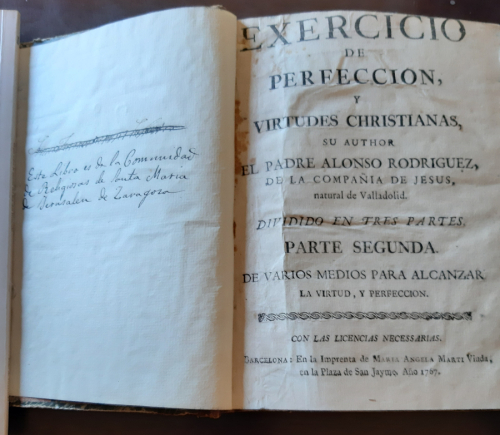 Este Libro es de la Comunidad
de Religiosas de Santa Maria
de Jerusalen de Zaragoza
EXERCICIO
DE
PERFECCION,
Y
VIRTUDES CHRISTIANAS,
SU AUTHOR
EL PADRE ALONSO RODRIGUEZ,
DE LA COMPAÑIA DE JESUS,
natural de Valladolid.
DIVIDIDO EN TRES PARTES.
PARTE SEGUNDA.
DE VARIOS MEDIOS PARA ALCANZAR
LA VIRTUD, Y PERFECCION.
CON LAS LICENCIAS NECESSARIAS.
BARCELONA: En la Imprenta de MARIA ANGELA MARTI Viuda,
en la Plaza de San Jayme. Año 1767.